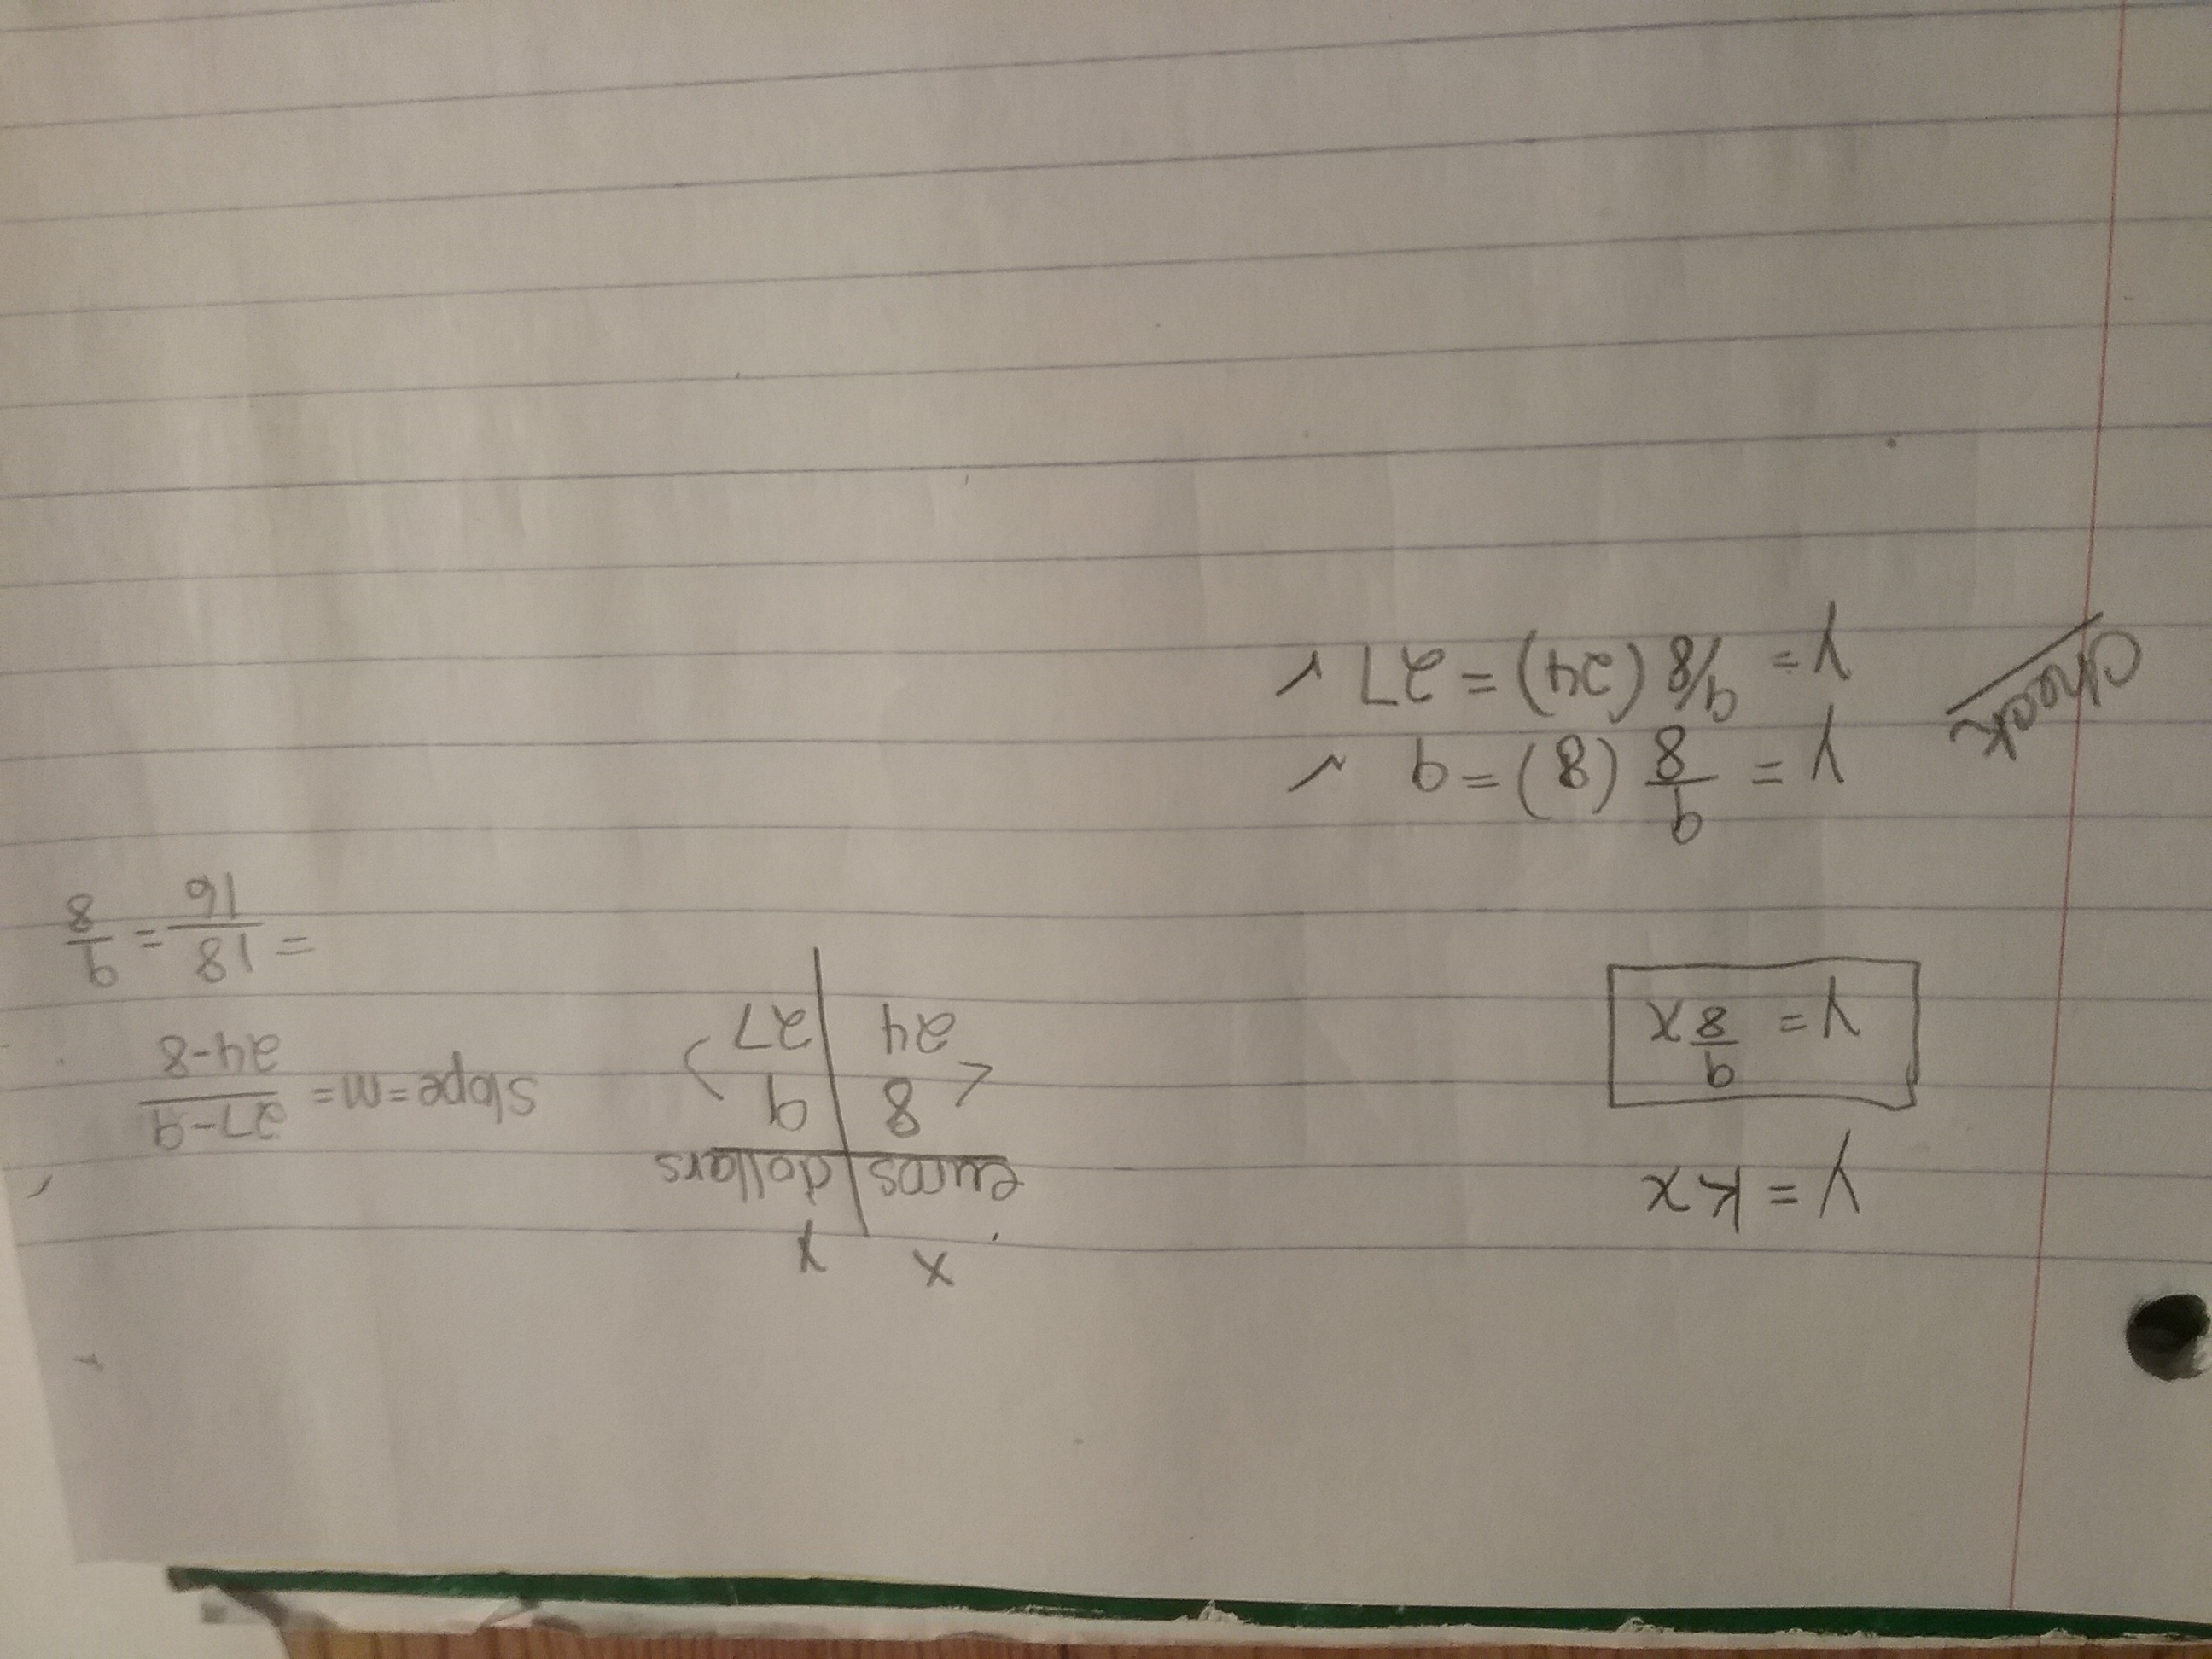 x y
y = kx euros dollars
8 9 slope = m = 27-9/24-8
y = 9/8 x 24 27
= 18/16 = 9/8
y = 9/8 (8) = 9 ✓
check y = 9/8 (24) = 27 ✓